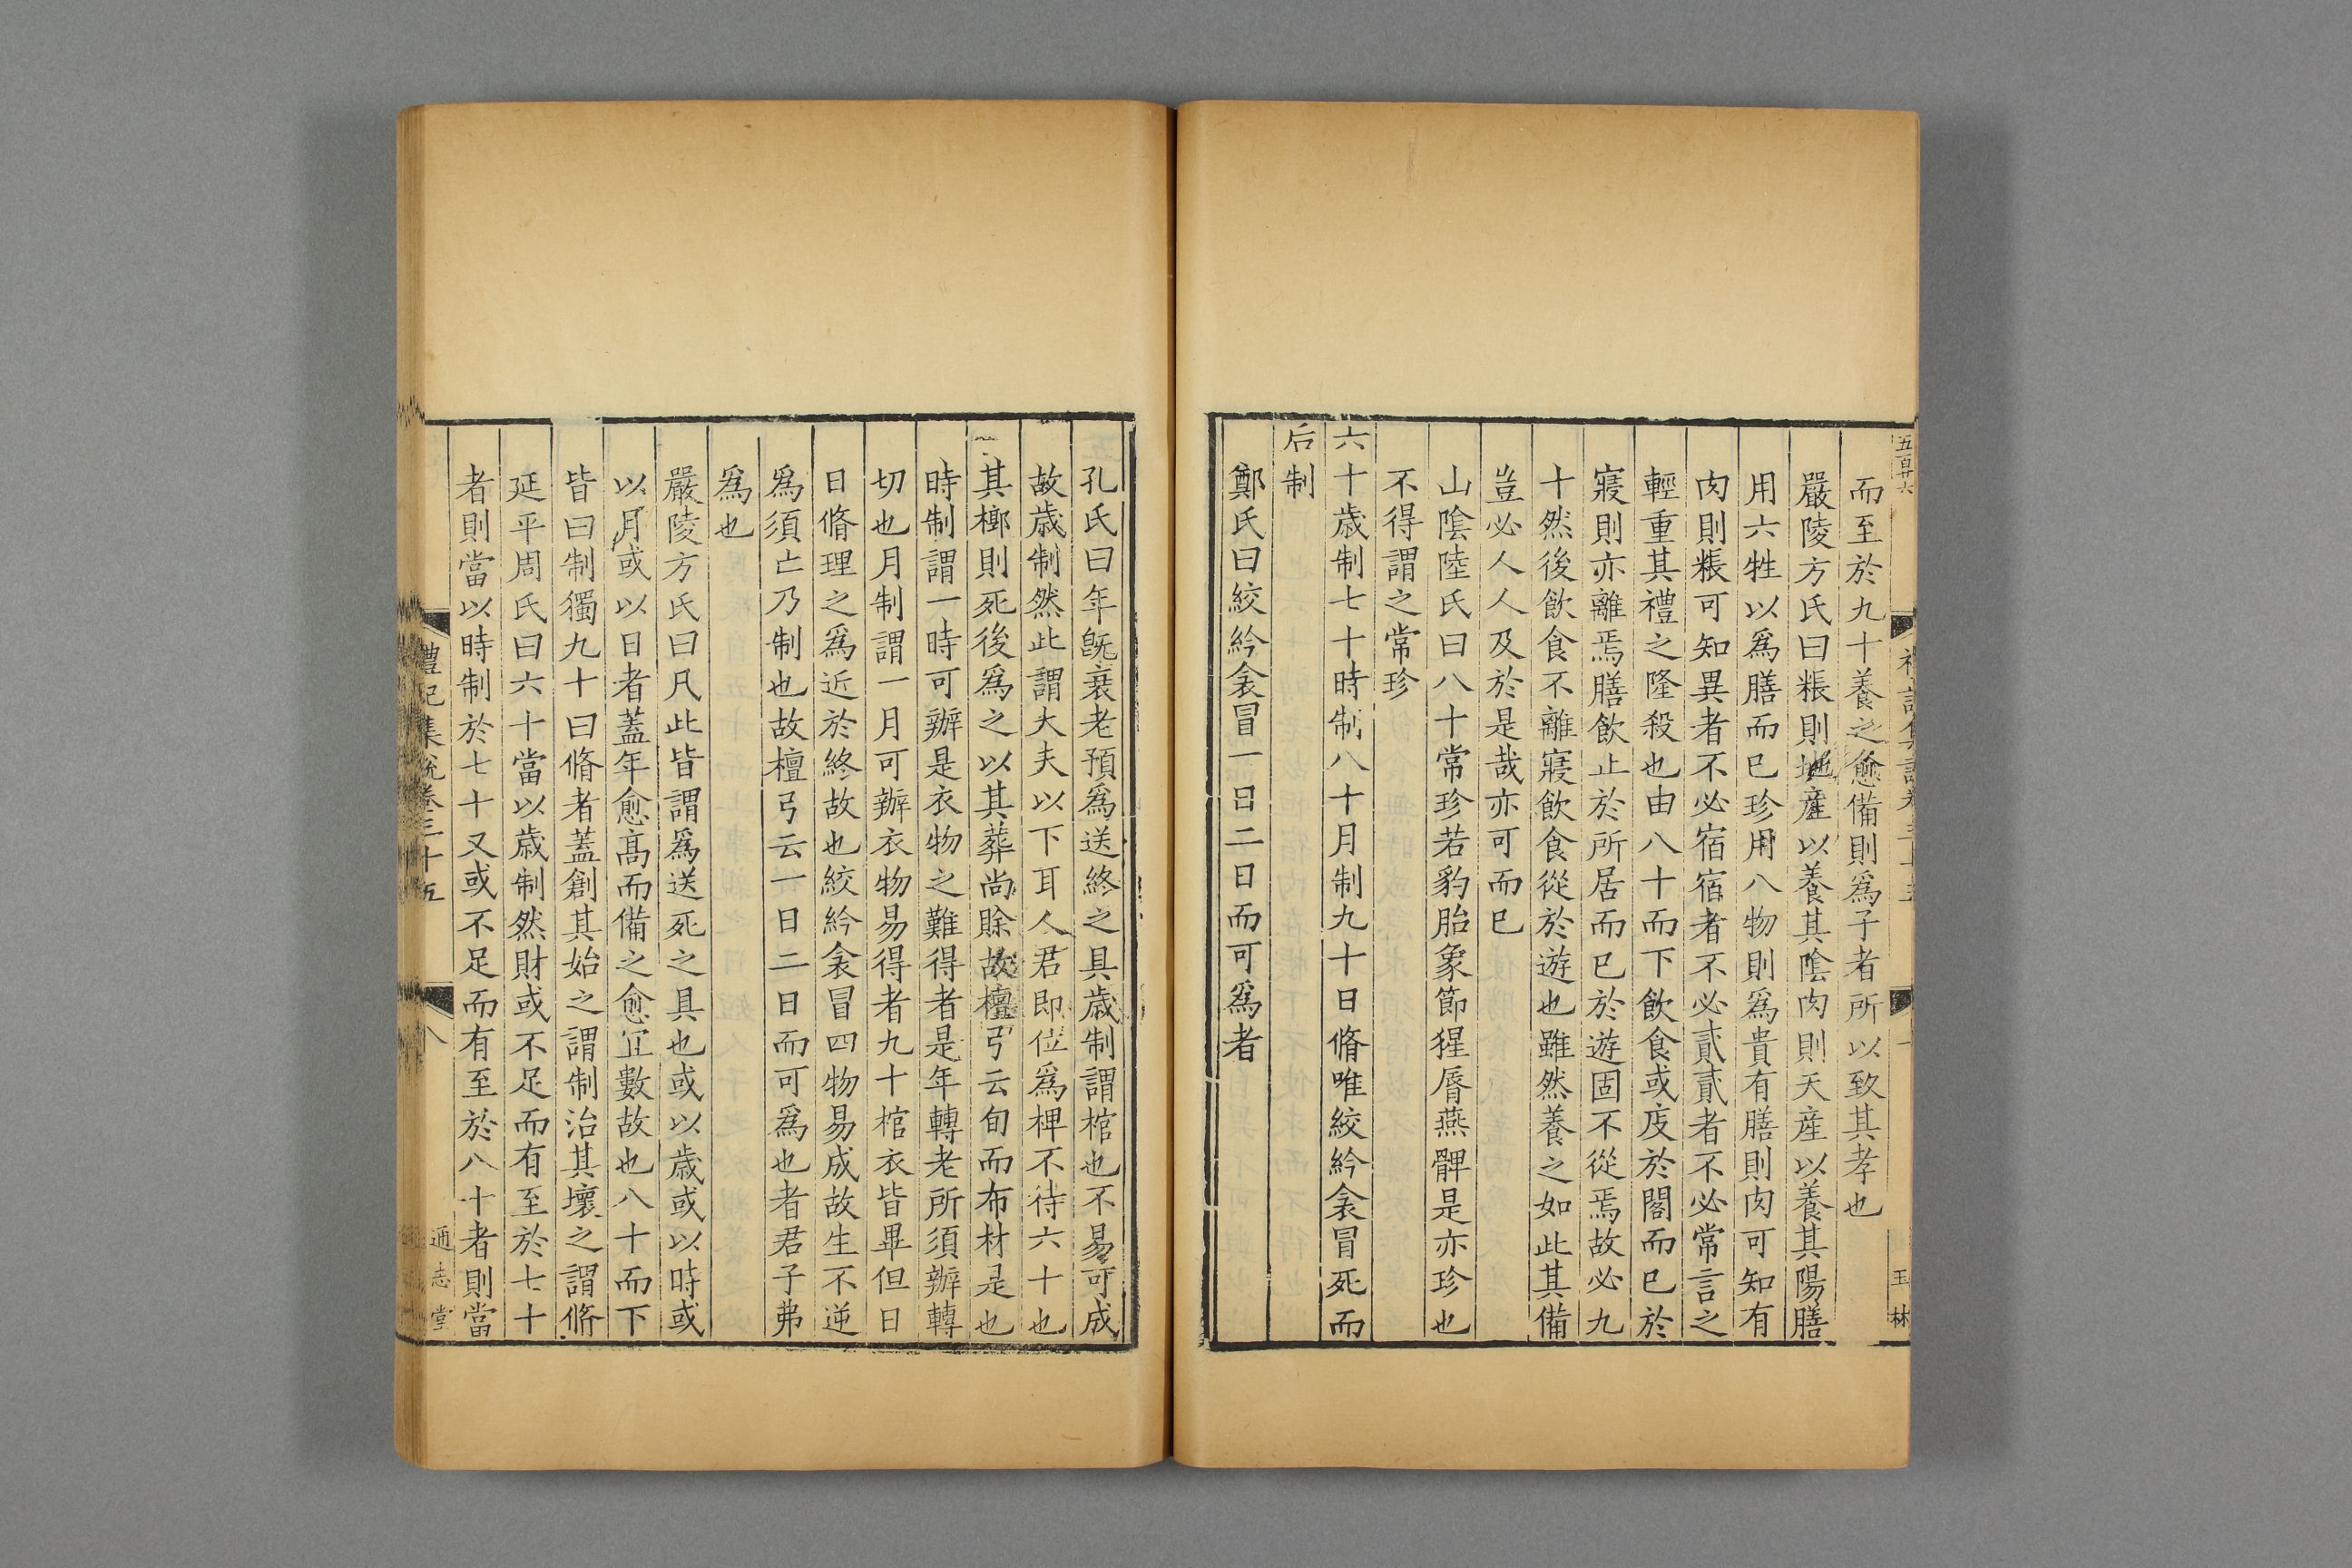 五百廿六
而至於九十養之愈備則爲子者所以致其孝也
嚴陵方氏曰粻則地産以養其陰肉則天産以養其陽膳
用六牲以爲膳而已珍用八物則爲貴有膳則肉可知有
肉則粻可知異者不必宿宿者不必貳貳者不必常言之
輕重其禮之隆殺也由八十而下飲食或庋於閣而已於
寢則亦離焉膳飲止於所居而已於遊固不從焉故必九
十然後飲食不離寢飲食從於遊也雖然養之如此其備
豈必人人及於是哉亦可而已
山陰陸氏曰八十常珍若豹胎象節猩脣燕髀是亦珍也
不得謂之常珍
六十歲制七十時制八十月制九十日脩唯絞紟衾冒死而
后制
鄭氏曰絞紟衾冒一日二日而可爲者
玉林
孔氏曰年旣衰老預爲送終之具歲制謂棺也不易可成
故歲制然此謂大夫以下耳人君即位爲椑不待六十也
其槨則死後爲之以其葬尚賒故檀弓云旬而布材是也
時制謂一時可辦是衣物之難得者是年轉老所須辦轉
切也月制謂一月可辦衣物易得者九十棺衣皆畢但日
日脩理之爲近於終故也絞紟衾冒四物易成故生不逆
爲須亡乃制也故檀弓云一日二日而可爲也者君子弗
爲也
嚴陵方氏曰凡此皆謂爲送死之具也或以歲或以時或
以月或以日者蓋年愈高而備之愈宜數故也八十而下
皆曰制獨九十曰脩者蓋創其始之謂制治其壞之謂脩
延平周氏曰六十當以歲制然財或不足而有至於七十
者則當以時制於七十又或不足而有至於八十者則當
禮記集說卷三十五
八
通志堂